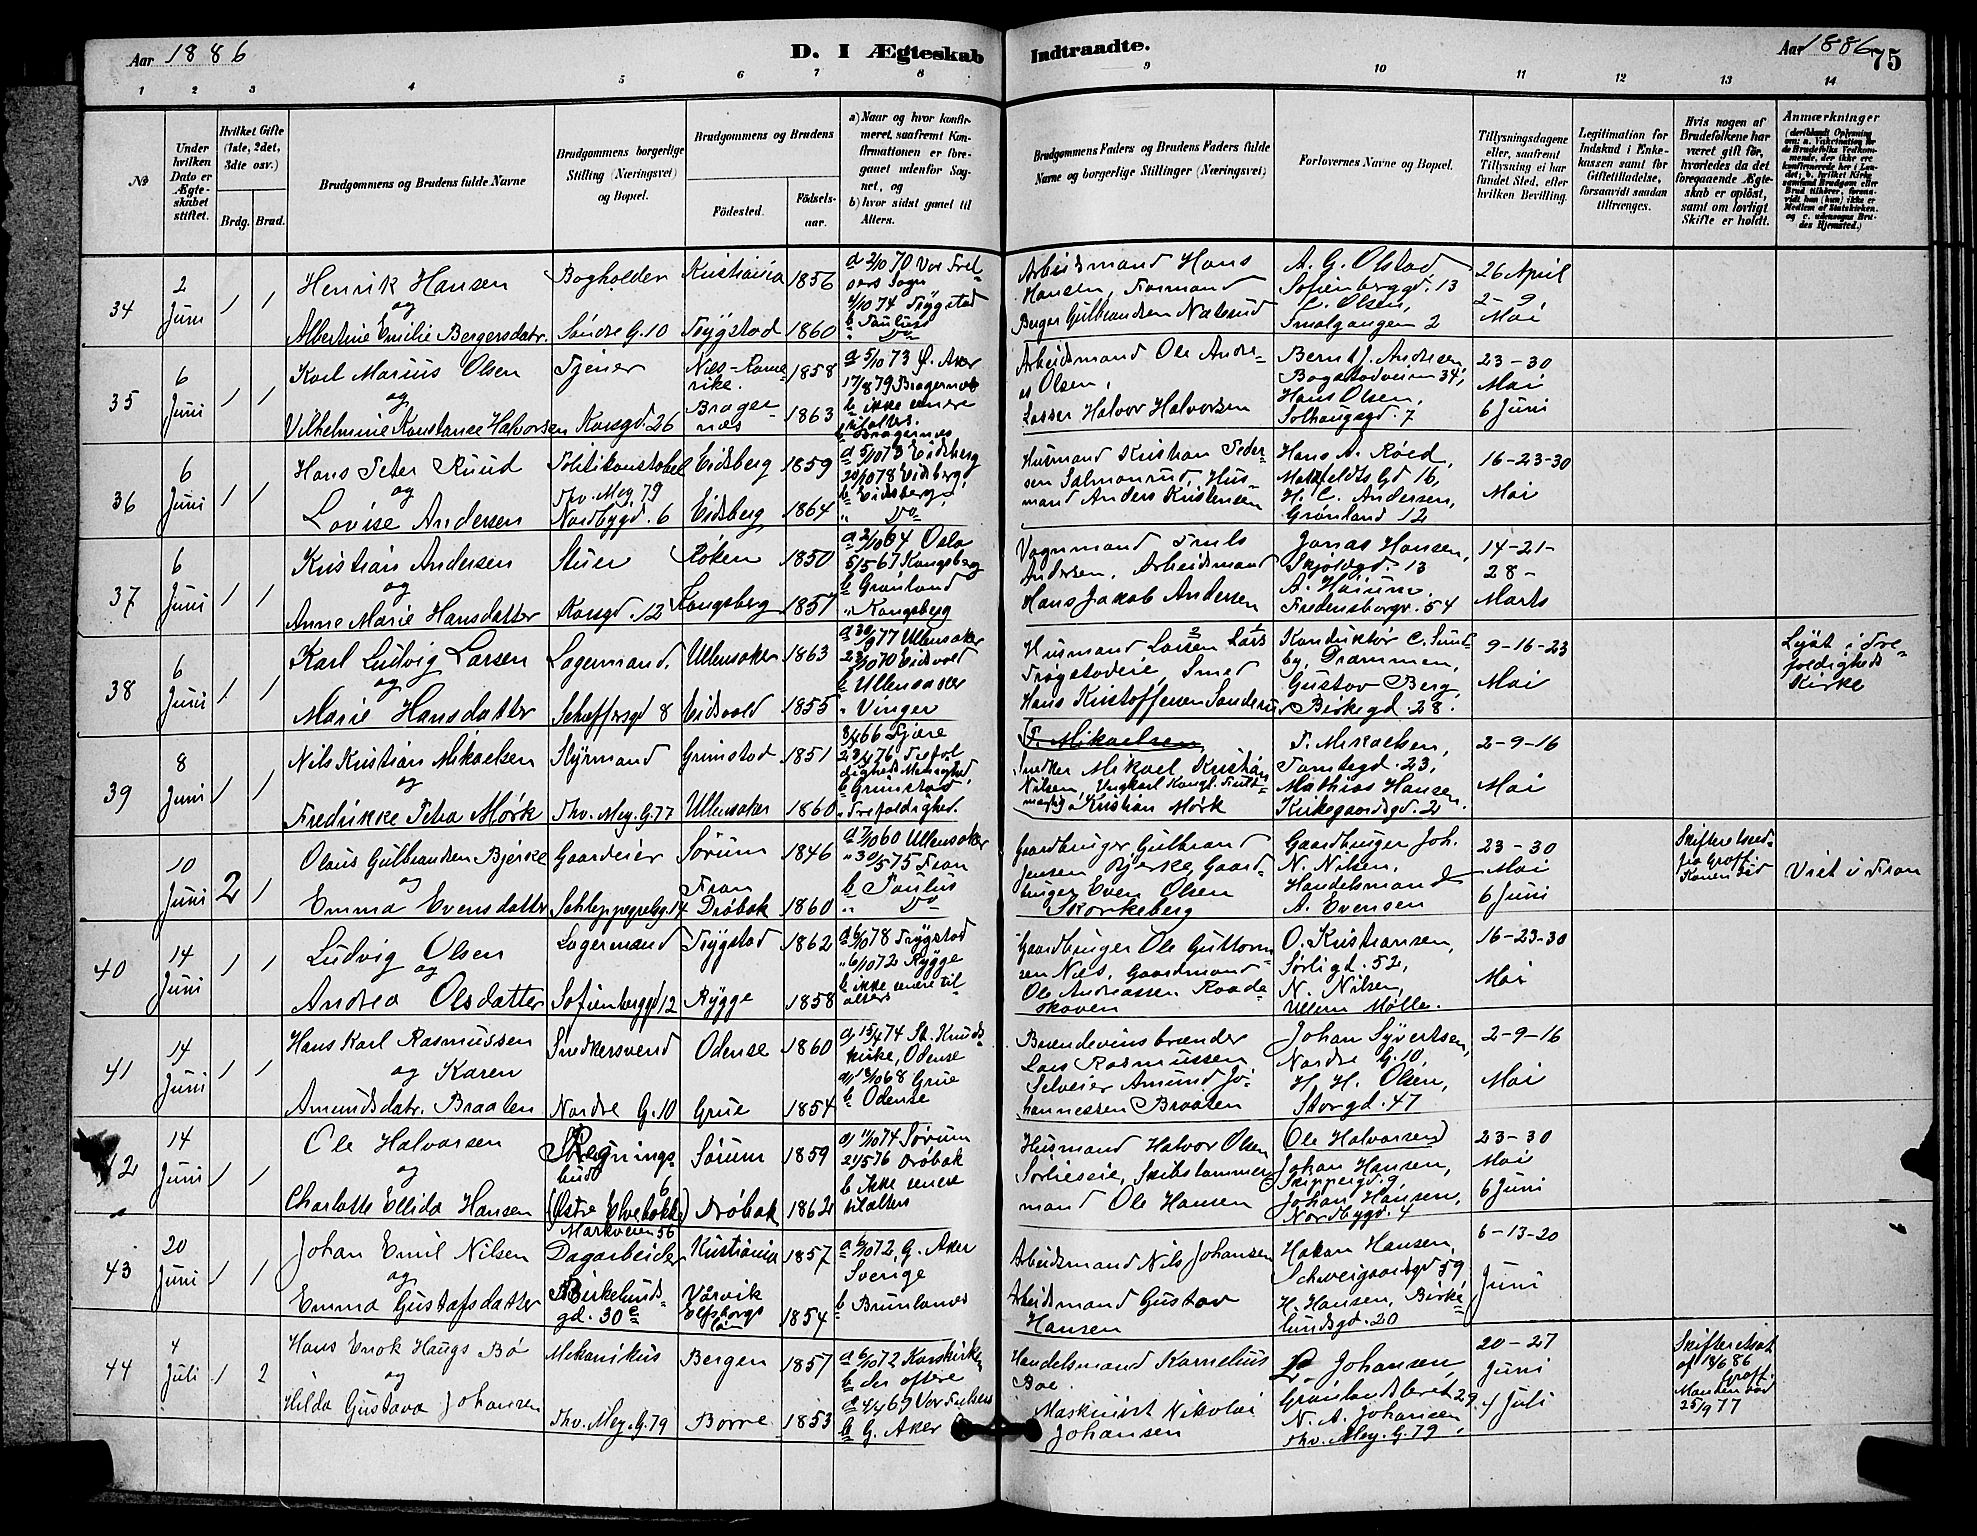 Aar 1886
D. I Ægteskab Indtraadte.
Aar 1886
75
1 2 3 4 5 6 7 8 9 10 11 12 13 14
No
Under hvilken Dato er Ægteskabet stiftet.
Hvilket Gifte (1ste, 2det, 3die osv.)
Brdg. Brud.
Brudgommens og Brudens fulde Navne
Brudgommens borgerlige Stilling (Næringsvei) og Bopæl.
Brudgommens og Brudens
Fødested.
Fødselsaar.
a) Naar og hvor konfirmeret, saafremt Konfirmationen er foregaaet udenfor Sognet, og
b) hvor sidst gaaet til Alters.
Brudgommens Faders og Brudens Faders fulde Navne og borgerlige Stillinger (Næringsvei)
Forlovernes Navne og Bopæl.
Tillysningsdagene eller, saafremt Tillysning ei har fundet Sted, efter hvilken Bevilling.
Legitimation for Indskud i Enkekassen samt for Giftetilladelse, forsaavidt saadan tiltrænges.
Hvis nogen af Brudefolkene har været gift før, hvorledes da det foregaaende Ægteskab er opløst, samt om lovligt Skifte er holdt.
Anmærkninger
34
2 Juni
1 1
Henrik Hansen
og
Albertine Emilie Bergersdatr.
Bogholder
Søndre G. 10
Kristiania 1856
Trygstad 1860
a 2/10 70 Vor Frelsers Sogn
4/10 74 Trygstad
b Paulus
" Do
Arbeidsmand Hans
Hansen, Formand
Berger Gulbrandsen Naterud
A. G. Olstad,
Sofienberggd. 13
C. Olsen,
Smalgangen 2
26 April
2-9,
Mai
35
6 Juni
1 1
Karl Marius Olsen
og
Vilhelmine Konstanse Halvorsen
Tjener
Korsgd. 26
Nes-Romerike. 1858
Bragernes 1863
a 5/10 73 Ø. Aker
17/8 79 Bragernes
b ikke senere
tilalters.
b Bragernes
Arbeidsmand Ole Andreas Olsen,
Losser Halvor Halvorsen
Bernt J. Andresen,
Bogstadveien 34,
Hans Olsen,
Solhauggd. 7
23-30
Mai
6 Juni
36
6 Juni
1 1
Hans Peter Ruud
og
Lovise Andersen
Politikonstabel
Thv. Mey. 79
Nordbygd. 6
Eidsberg 1859
Eidsberg 1864
a 5/10 73 Eidsberg
20/10 78 Eidsberg
b Eidsberg
" Do
Husmand Kristian Pedersen Salmonrud, Husmand Anders Kristensen
Hans A. Røed,
Motzfeldts Gd 16,
H. C. Andersen,
Grønland 12
16-23-30
Mai
37
6 Juni
1 1
Kristian Andersen
og
Anne Marie Hansdatter
Stuer
Korsgd. 12
Røken 1850
Kongsberg 1857
a 2/10 64 Oslo
5/5 67 Kongsberg
b Grønland
" Kongsberg
Vognmand Truls
Andersen, Arbeidsmand
Hans Jakob Andersen
Jonas Hansen,
Skjoldgd. 13
A. Høium,
Fredensborgv. 54
14-21-
28-
Marts
38
6 Juni
1 1
Karl Ludvig Larsen
og
Marie Hansdatter
Lagermand,
Schæffersgd 8
Ullensaker 1863
Eidsvold 1855
a 30/9 77 Ullensaker
23/10 70 Eidsvold
b Ullensaker
" Vinger
Husmand Larsen Lars
Trøgstadeie, Smed
Hans Kristoffersen Sanderud
Konduktør C. Sundby, Drammen,
Gustav Berg,
Birkegd. 28.
9-16-23
Mai
Lyst i Trefoldigheds Kirke
39
8 Juni
1 1
Nils Kristian Mikaelsen
og
Fredrikke Petra Mørk
Styrmand
Thv. Mey. G. 77
Grimstad 1851
Ullensaker 1860
66 Fjære
76 Trefoldigheds Menighed,
b Grimstad
" Trefoldighed.
T. Mikaelsen,
Snedker Mikael Kristian
Nilsen, Ungkarl Kristian Mørk
T. Mikaelsen,
Tomtegd. 23,
Mathias Hansen,
Kirkegaardsgd. 2
2-9-16
Mai
10 Juni
2 1
Olaus Gulbrandsen Bjerke
og
Emma Evensdatter
Gaardeier
Schleppegrelsg. 14
Sørum 1846
Fron Drøbak 1860
a 7/10 60 Ullensaker
" 30/5 75 Fron
b Paulus
" Do
Gaardbruger Gulbrand
Jensen Bjerke, Gaardbruger Even Olsen
Skorkeberg
Gaardbruger Joh.
N. Nilsen,
Handelsmand
A. Evensen
23-30
Mai
6 Juni
Viet i Fron
40
14 Juni
1 1
Ludvig Olsen
og
Andrea Olsdatter
Lagermand
Sofienberggd 12
Trygstad 1862
Rygge 1858
a 6/10 78 Trygstad
" 6/10 72 Rygge
b ikke senere tilalters
Gaardbruger Ole Guttormsen Næs, Gaardmand
Ole Andreassen Raadeskoven
O. Kristiansen,
Sørligd. 52,
N. Nilsen,
Ullern Mølle.
16-23-30
Mai
41
14 Juni
1 1
Hans Karl Rasmussen
og Karen
Amundsdatr. Braaten
Snedkersvend
Nordre G. 10
Odense 1860
Grue 1854
a) 15/4 74 St. Knuds
kirke, Odense
a) 18/10 68 Grue
b Odense
Brændevinsbrænder
Lars Rasmussen
Selveier Amund Johannessen Braaten
Johan Syvertsen,
Nordre G. 10,
H. H. Olsen,
Storgd. 47
2-9-16
Mai
42
14 Juni
1 1
Ole Halvorsen
og
Charlotte Ellida Hansen
Regningsbud
(Østre Elvebakke 6)
Markveien 56
Sørum 1859
Drøbak 1862
a) 11/10 74 Sørum
21/5 76 Drøbak
b ikke senere
tilalters
Husmand Halvor Olsen
Sørlieseie, Skibstømmermand Ole Hansen
Ole Halvorsen
Johan Hansen,
Skippergd. 9,
Johan Hansen,
Nordbygd. 4
23-30
Mai
6 Juni
43
20 Juni
1 1
Johan Emil Nilsen
og
Emma Gustafsdatter
Dagarbeider
Birkelundsgd. 30 c
Kristiania 1857
Varvik Elfsborgs län 1854
a 6/10 72, G. Aker
Sverige
b Brunlanes
Arbeidsmand Nils Johansen
Arbeidsmand Gustav
Hansen
Hakon Hansen,
Schweigaardsgd 59,
H. Hansen, Birkelundsgd. 20
6-13-20
Juni
44
4 Juli
1 2
Hans Enok Haugs Bø
og
Hilda Gustava Johansen
Mekanikus
Thv. Mey. G. 79
Bergen 1857
Borre 1853
a 6/10 72 Korskirken
b der oftere
a 4/4 69 Vor Frelsers
b G. Aker
Handelsmand Kornelius
Boe.
Maskinist Nikolai
Johansen
L. Johansen,
Grønlandsleret 29
N. A. Johansen
Thv. Mey. G. 79
20-27
Juni
4 Juli
Skifteretsat.
af 18/6 86
Manden død
25/9 77